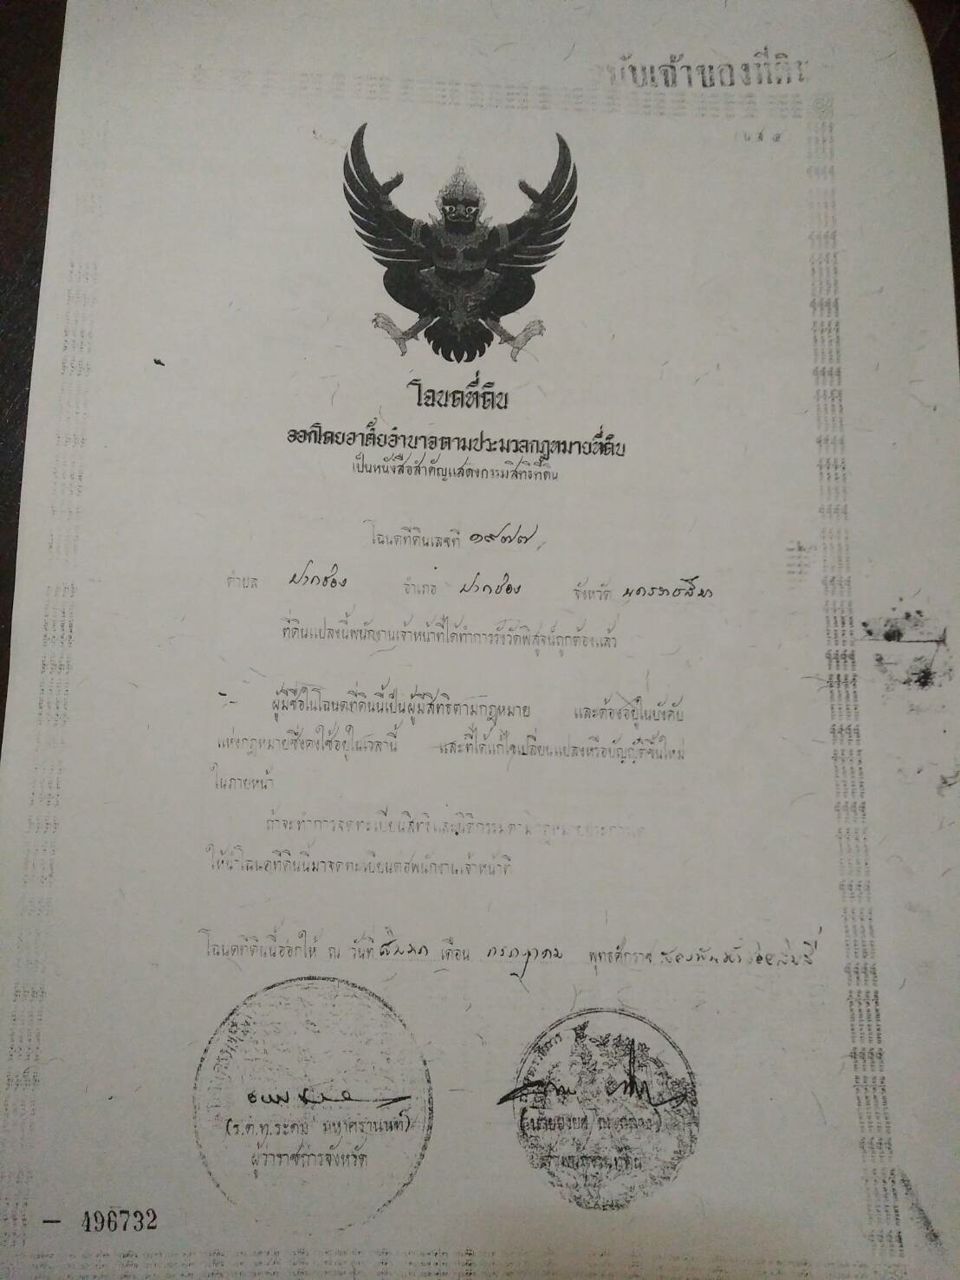 ฉบับเจ้าของที่ดิน
น.ส. ๔
โฉนดที่ดิน
ออกโดยอาศัยอำนาจตามประมวลกฎหมายที่ดิน
เป็นหนังสือสำคัญแสดงกรรมสิทธิ์ที่ดิน
โฉนดที่ดินเลขที่ ๑๙๗๗
ตำบล ปากช่อง อำเภอ ปากช่อง จังหวัด นครราชสีมา
ที่ดินแปลงนี้พนักงานเจ้าหน้าที่ได้ทำการรังวัดพิสูจน์ถูกต้องแล้ว
ผู้มีชื่อในโฉนดที่ดินนี้เป็นผู้มีสิทธิตามกฎหมาย และต้องอยู่ในบังคับ
แห่งกฎหมายซึ่งคงใช้อยู่ในเวลานี้ และที่ได้แก้ไขเปลี่ยนแปลงหรือบัญญัติขึ้นใหม่
ในภายหน้า
ถ้าจะทำการจดทะเบียนสิทธิและนิติกรรมตามกฎหมายประการใด
ให้นำโฉนดที่ดินนี้มาจดทะเบียนต่อพนักงานเจ้าหน้าที่
โฉนดที่ดินนี้ออกให้ ณ วันที่ เดือน กรกฎาคม พุทธศักราช สองพันห้าร้อยสิบสี่
(ร.ต.ท.ระดม มหาศรานนท์)
ผู้ว่าราชการจังหวัด
496732